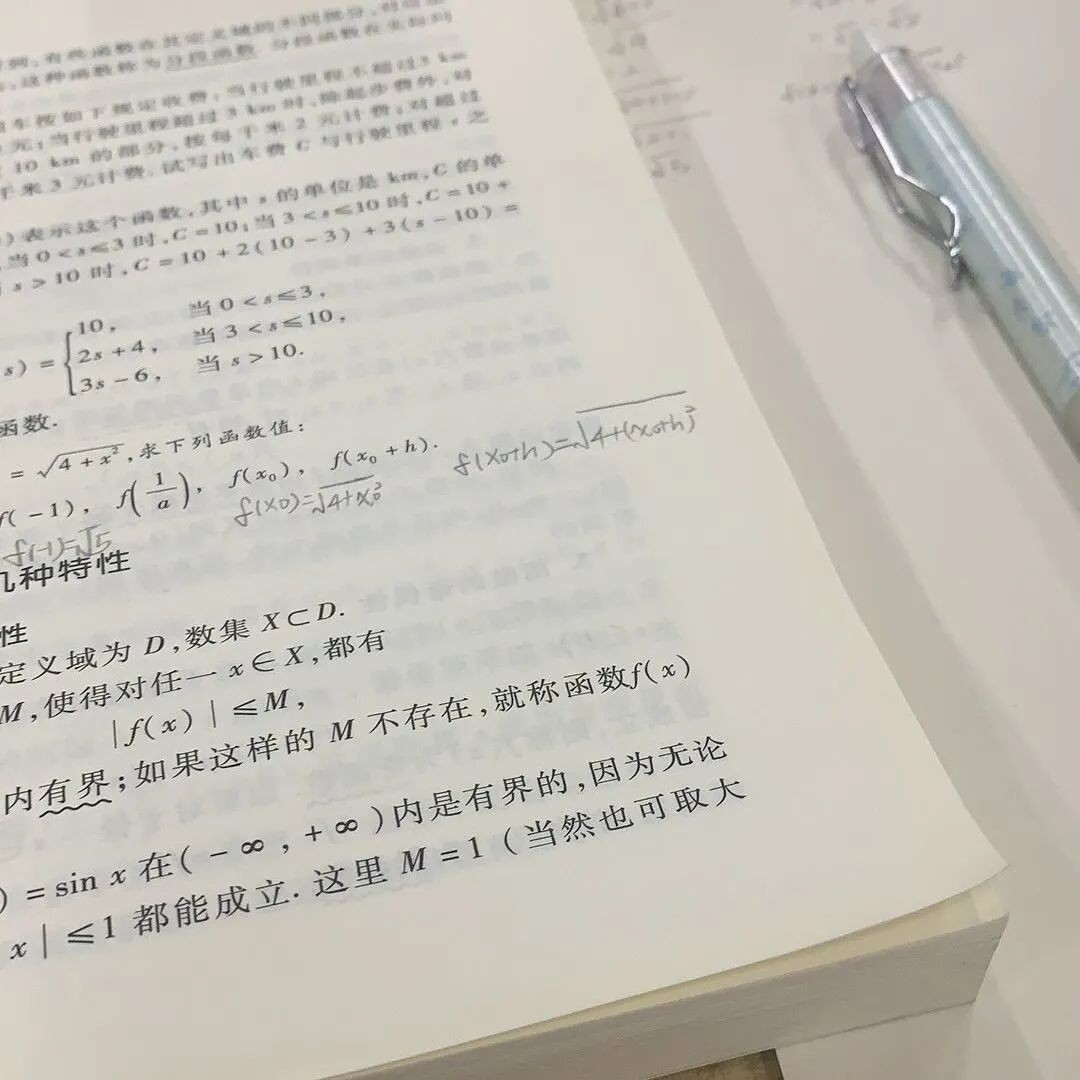 有些函数在其定义域的不同部分,对应法
这种函数称为分段函数. 分段函数在实际问
车按如下规定收费:当行驶里程不超过3 km
元;当行驶里程超过 3 km 时,除起步费外,对
10 km 的部分,按每千米 2 元计费;对超过
千米3元计费.试写出车费 C 与行驶里程 s 之
)表示这个函数,其中 s 的单位是 km,C 的单
当 0 < s ≤ 3 时,C = 10;当 3 < s ≤ 10 时,C = 10 +
s > 10 时,C = 10 + 2(10 - 3) + 3(s - 10) =
10, 当 0 < s ≤ 3,
s) = { 2s + 4, 当 3 < s ≤ 10,
3s - 6, 当 s > 10.
函数.
= √(4 + x²),求下列函数值:
f(-1), f(1/a), f(x₀), f(x₀ + h).
f(x₀+h)=√4+(x₀+h)²
f(x₀)=√4+x₀²
f(-1)=√5
几种特性
性
定义域为 D,数集 X⊂D.
M,使得对任一 x∈X,都有
|f(x)| ≤ M,
内有界;如果这样的 M 不存在,就称函数f(x)
) = sin x 在(-∞, +∞)内是有界的,因为无论
x| ≤ 1 都能成立. 这里 M = 1 (当然也可取大